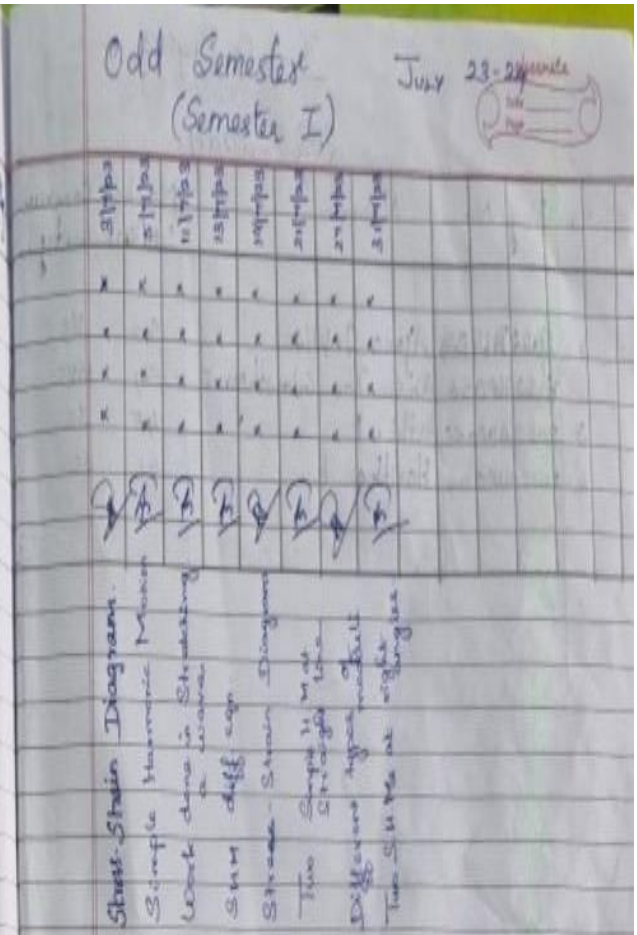 Odd Semester
(Semester I)
July 23-24
Date
Page
3/7/23
5/7/23
11/7/23
13/7/23
21/7/23
27/7/23
31/7/23
x x x x
x x x x
x x x x
x x x x
x x x x
x x x x
x x x x
x x x x
Stress-Strain Diagram.
Simple Harmonic Motion
Work done in Stretching
a
SHM diff eqn.
Stress-Strain Diagram
Two Simple H M at
Straight line
Different types of
Two SHMs at right
angles